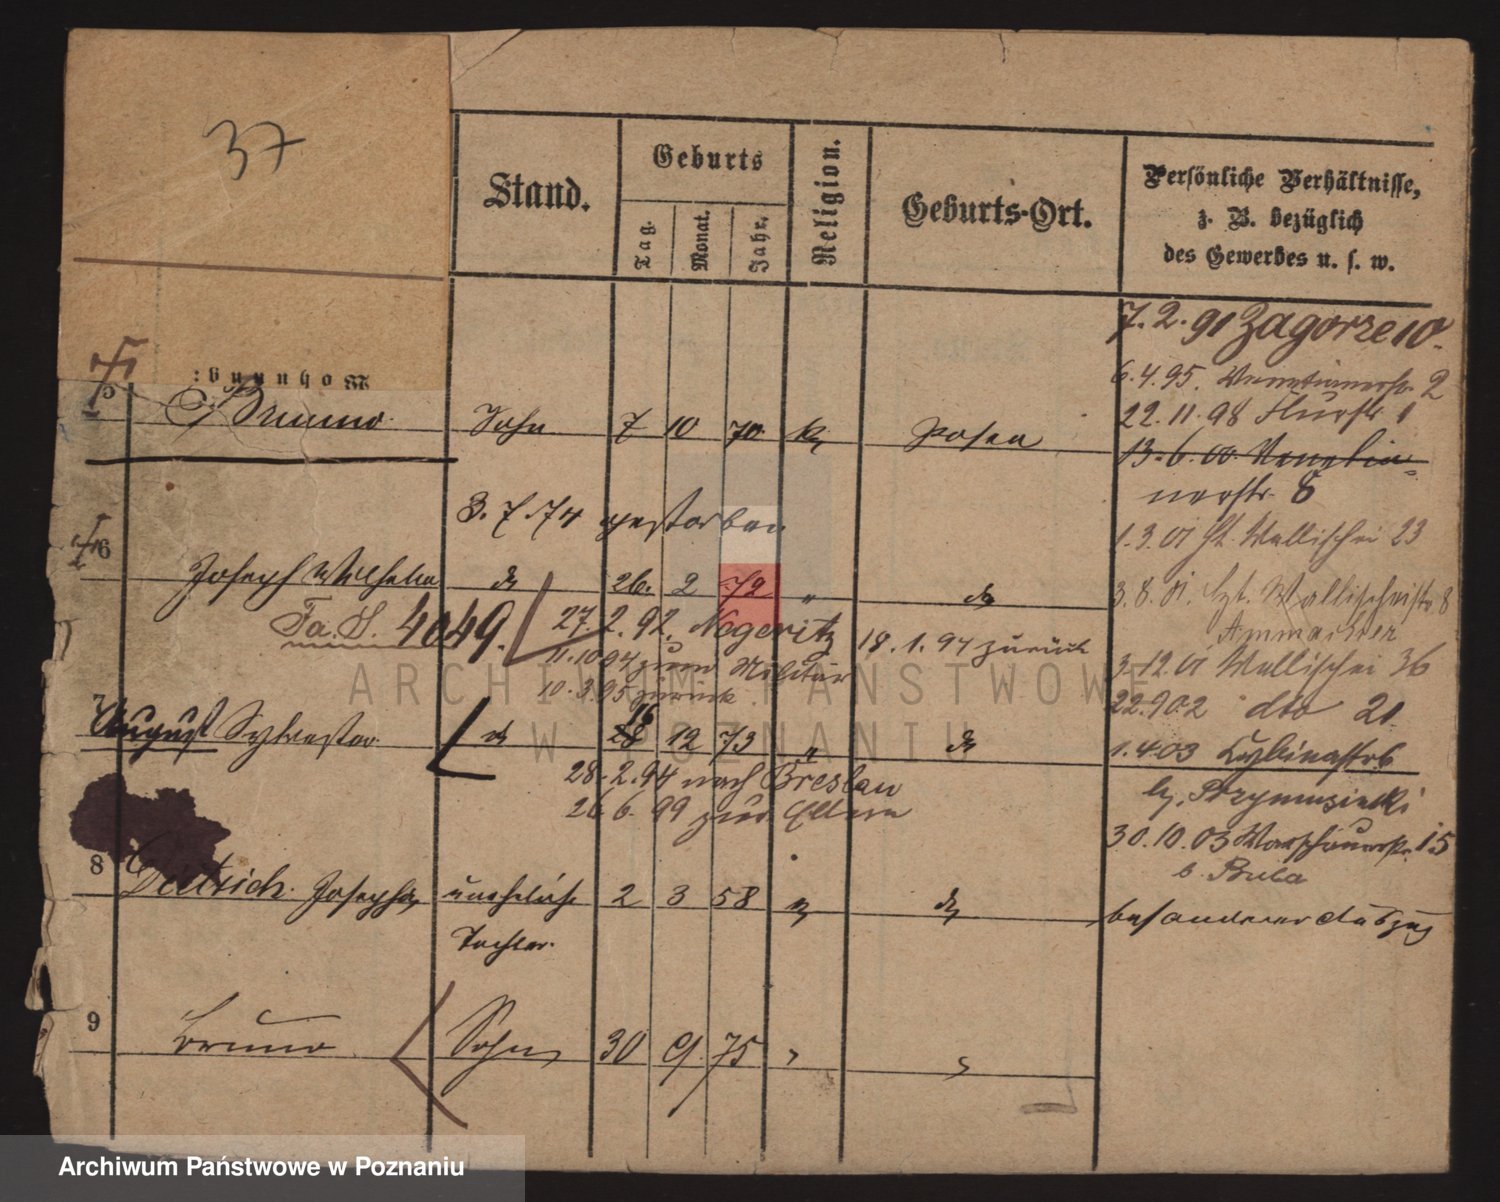 37
Stand.
Geburts
Tag.
Monat.
Jahr.
Religion.
Geburts-Ort.
Persönliche Verhältnisse,
z. B. bezüglich
des Gewerbes u. s. w.
Wohnung:
7. 2. 91 Zagorze 10.
6. 4. 95. Venetianerstr. 2
5 Bruno Sohn 7 10 70 k Posen
22. 11. 98 Flurstr. 1
13. 6. 00. Venetia-
nerstr. 8
3. 7. 74 gestorben
1. 3. 01 Wallischei 23
6 Joseph Wilhelm do 26. 2 72 " do
3. 8. 01. Wallischeistr. 8
Fa. S. 4049.
27. 2. 92. 18. 1. 94 zurück
11. 10 94 zum Militär
3. 12. 01 Wallischei 36
10. 3. 95 zurück
22. 9 02 dto 21
7 August Sylvester do 28 16 12 73 " do
1. 4. 03 Cybinastr 6
28. 2. 94 nach Breslau
26. 6. 99 zur Eltern
b. Przymusinski
30. 10. 03 Warschauerstr. 15
b. Buba
8 Dietrich Josepha uneheliche 2 3 58 k do besonderer Auszug
Tochter.
9 Bruno Sohn 30 9 75
ARCHIWUM PAŃSTWOWE
W POZNANIU
Archiwum Państwowe w Poznaniu